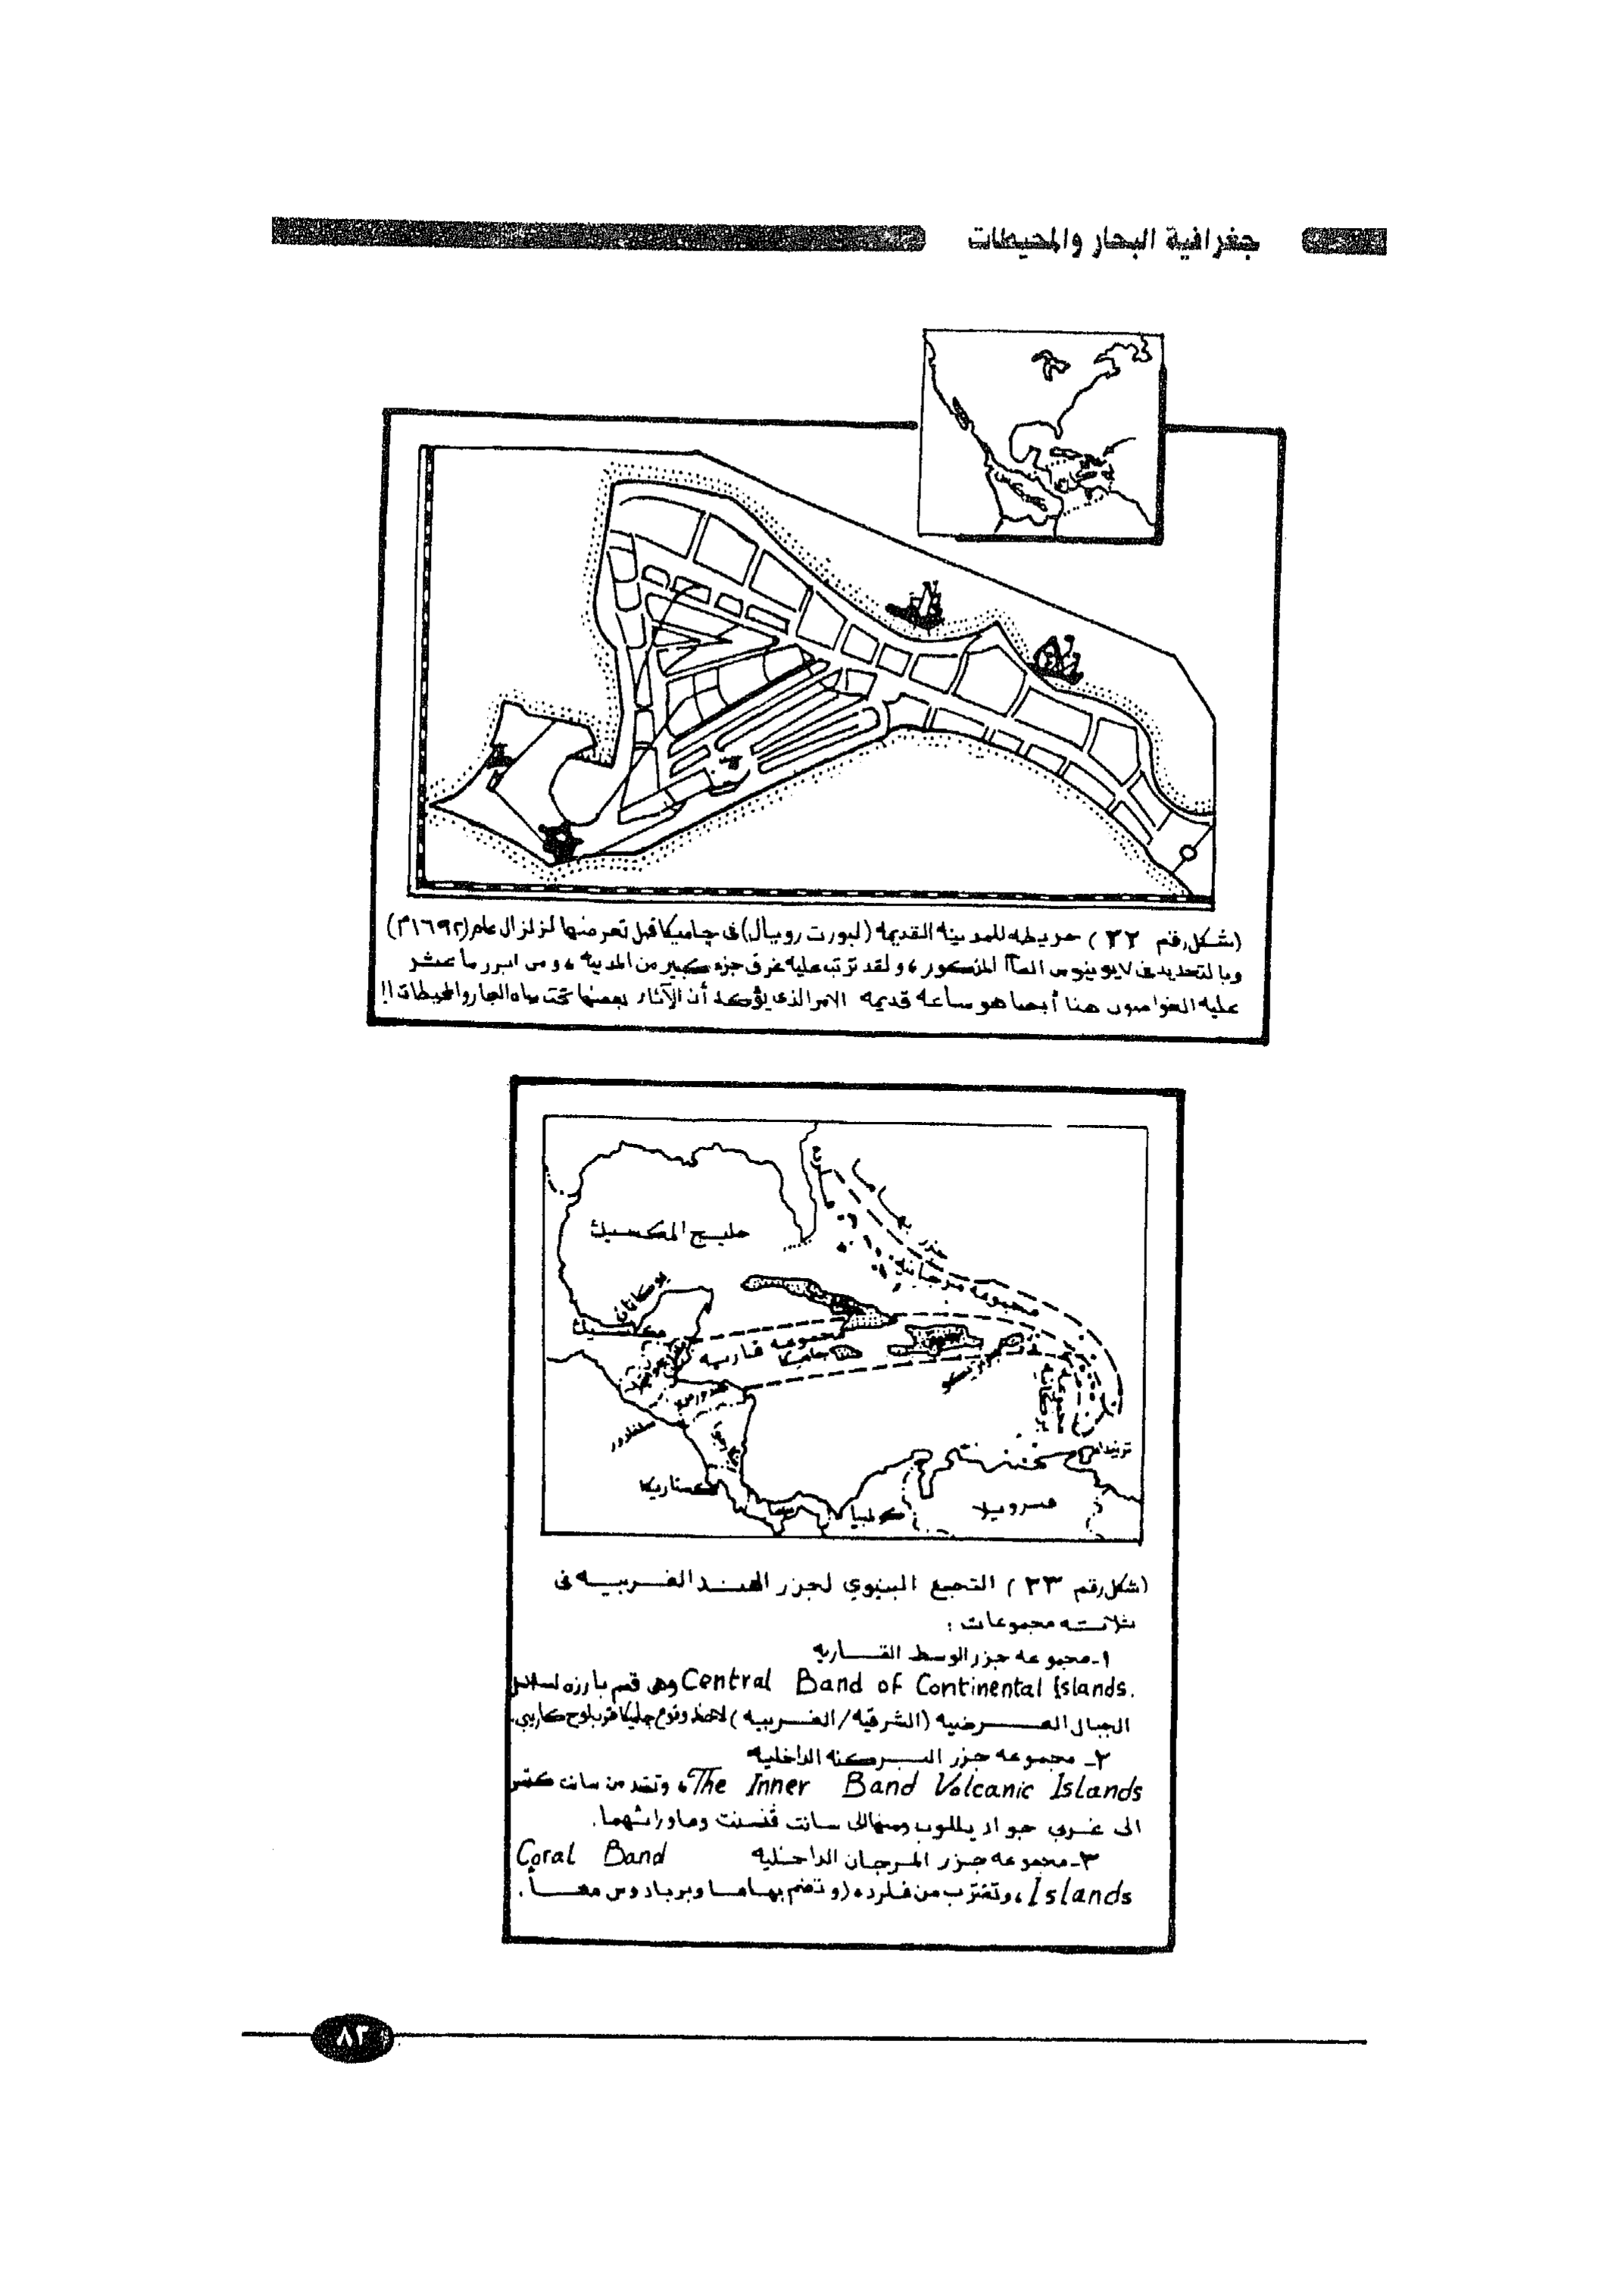 جغرافية البحار والمحيطات
(شكل رقم ٣٢) خريطه للمدينه القديمه (لبورت رويال) فى چاميكا قبل تعرضها لزلزال عام (١٦٩٢م)
وبالتحديد فى ٧ يونيو من العام المذكور، ولقد ترتب عليه غرق جزء كبير من المدينه، ومن ابرز ما عشر
عليه الغواصون هنا أيضا هو ساعه قديمه الامر الذى يؤكد أن الآثار بعضها تحت مياه البحار والمحيطات !!
خليج المكسيك
جزر بهاما
مجموعه مرجانيه
يوكاتان
مكسيك
مجموعه قاريه
جاميكا
مجموعه بركانيه
سلفادور
كستاريكا
بنما
كولمبيا
فنزويلا
ترنيداد
(شكل رقم ٣٣) التجمع البنيوي لجزر الهند الغربيه فى
ثلاثه مجموعات :
١- مجموعه جزر الوسط القاريه
Central Band of Continental Islands. وهى قمم بارزه لسلاسل
الجبال العرضيه (الشرقيه/الغربيه) لاحظ وقوع جاميكا قرب لوح كاريبى.
٢- مجموعه جزر البركنه الداخليه
The Inner Band Volcanic Islands، وتمتد من سانت كتس
الى غربى جواديلوب ومنها الى سانت ڤنسنت وماورائهما.
٣- مجموعه جزر المرجان الداخليه Coral Band
Islands، وتقترب من فلوريده (وتضم بهاما وبربادوس معاً.
٨٣